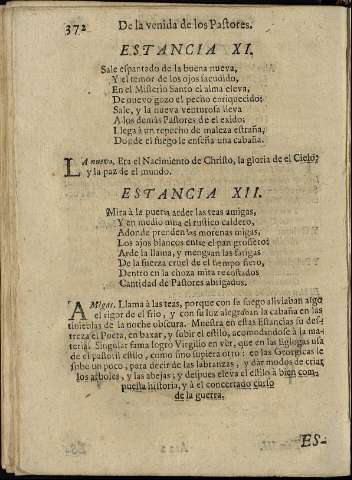 372 De la venida de los Pastores.
ESTANCIA XI.
Sale espantado de la buena nueva,
Y el temor de los ojos sacudido,
En el Misterio Santo el alma eleva,
De nuevo gozo el pecho enriquecido:
Sale, y la nueva venturosa lleva
A los demás Pastores de el exido:
Llega à un repecho de maleza estraña,
Donde el fuego le enseña una cabaña.
LA nueva. Era el Nacimiento de Christo, la gloria de el Cielo,
y la paz de el mundo.
ESTANCIA XII.
Mira à la puerta arder las teas amigas,
Y en medio mira el rustico caldero,
Adonde prenden las morenas migas,
Los ajos blancos entre el pan grosero:
Arde la llama, y menguan las fatigas
De la fuerza cruel de el tiempo fiero,
Dentro en la choza mira recostados
Cantidad de Pastores abrigados.
AMigas. Llama à las teas, porque con su fuego aliviaban algo
el rigor de el frio, y con su luz alegraban la cabaña en las
tinieblas de la noche obscura. Muestra en estas Estancias su des-
treza el Poeta, en baxar, y subir el estilo, acomodandose à la ma-
teria. Singular fama logrò Virgilio en ver, que en las Eglogas usa
de el pastoril estilo, como sino supiera otro: en las Georgicas le
sube un poco, para decir de las labranzas, y dàr modos de criar
los arboles, y las abejas: y despues eleva el estilo à bien com-
puesta historia, y à el concertado curso
de la guerra.
ES-